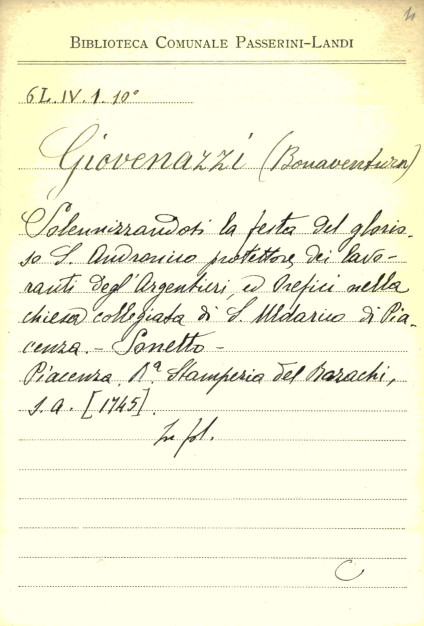 BIBLIOTECA COMUNALE PASSERINI-LANDI
6L.IV.1.10°
Giovenazzi (Bonaventura)
Solennizzandosi la festa del glorio-
so S. Andronico protettore dei lavo-
ranti degl'Argentieri, ed Orefici nella
chiesa collegiata di S. Uldarico di Pia-
cenza. - Sonetto -
Piacenza, Rª. Stamperia del Bazachi,
s.a. [1745].
In fol.
C